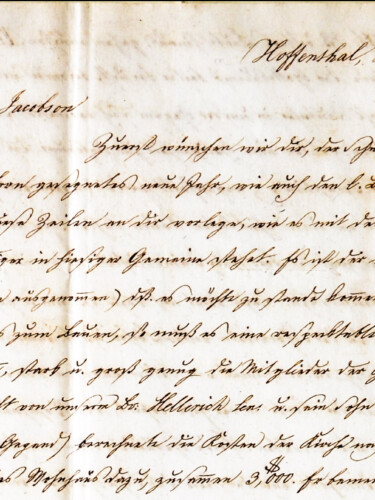 Hoffenthal,
Jacobson
Zuerst wünschen wir dir, der
gesegnetes neue Jahr, wie auch den l. B
diese Zeilen an dir vorlege, wie es mit de
in hiesiger Gemeine stehet. Es ist der
ausgenommen) dß. es möchte zu stande komme
zum Bauen, so muß es eine respectable
stark u. groß genug die Mitglieder der G
von unserm Br. Hellerich sen. u. sein Sohn
Gegend) berechnete die Kosten der Kirche
Wohnhaus dazu, zusammen $3,000. Er beme